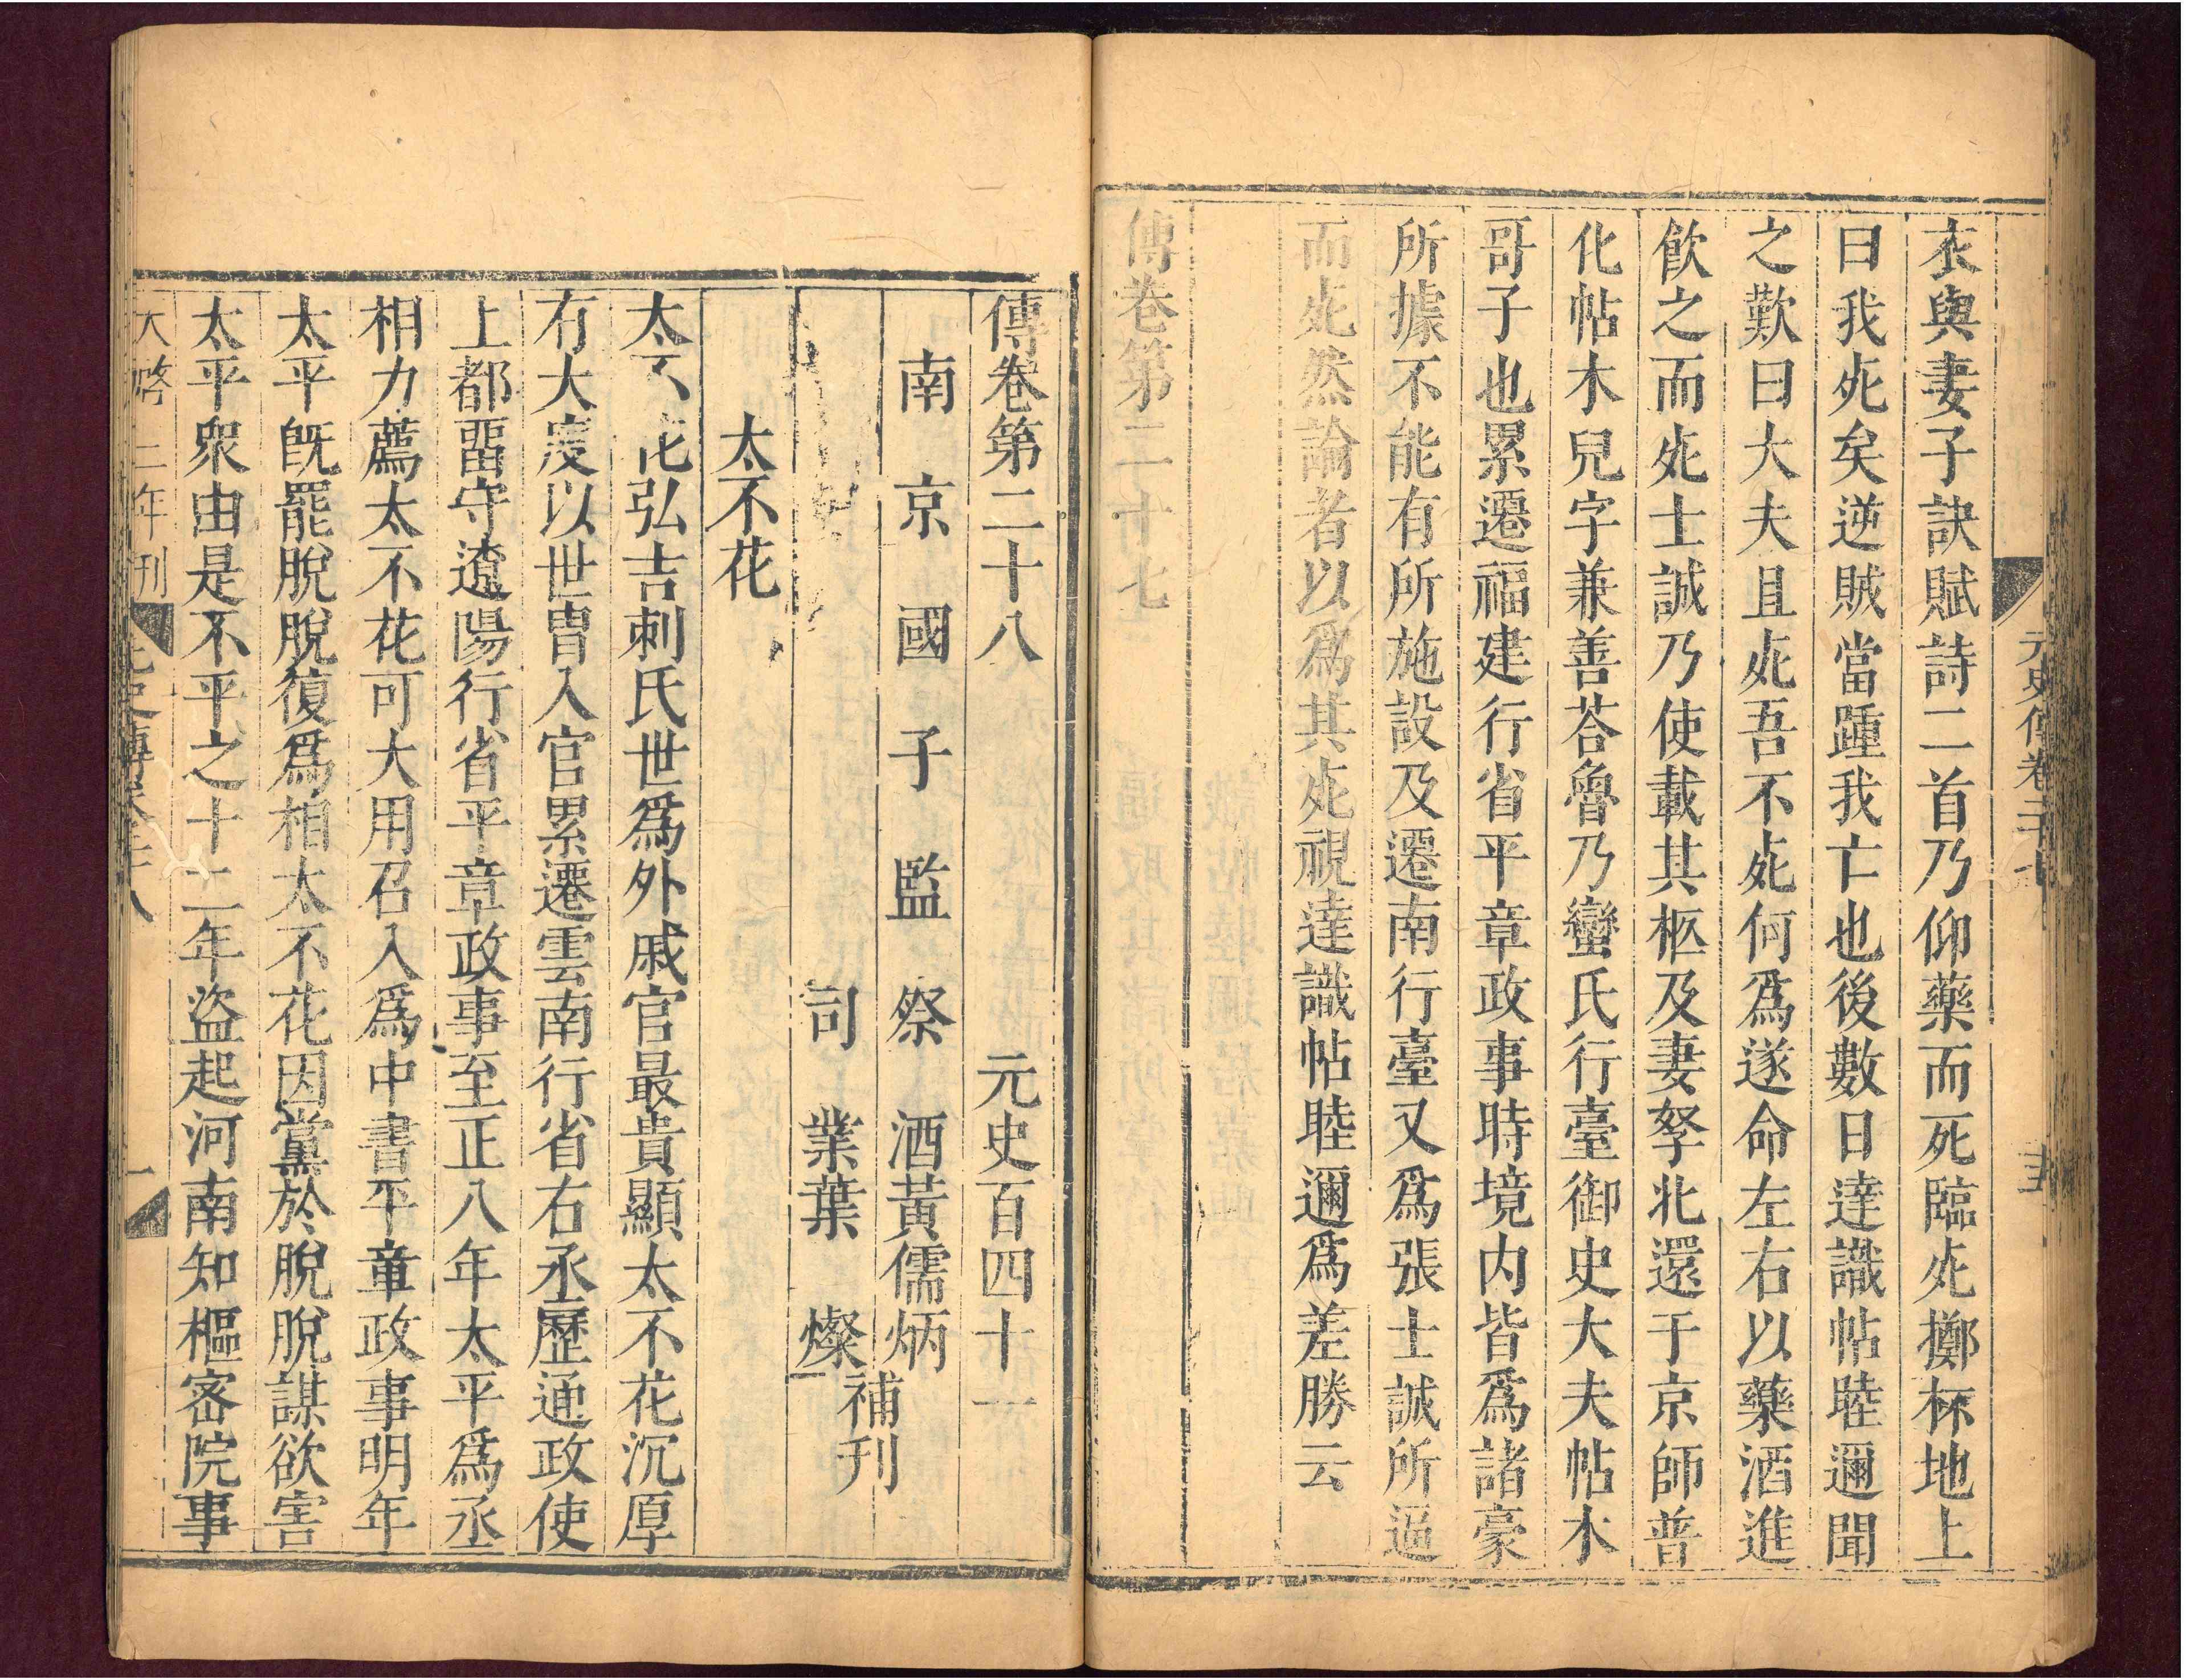 元史傳卷二十七
衣與妻子訣賦詩二首乃仰藥而死臨死擲杯地上
曰我死矣逆賊當踵我亡也後數日達識帖睦邇聞
之歎曰大夫且死吾不死何爲遂命左右以藥酒進
飲之而死士誠乃使載其柩及妻孥北還于京師普
化帖木兒字兼善荅魯乃蠻氏行臺御史大夫帖木
哥子也累遷福建行省平章政事時境内皆爲諸豪
所據不能有所施設及遷南行臺又爲張士誠所逼
而死然論者以爲其死視達識帖睦邇爲差勝云
傳卷第二十七
傳卷第二十八 元史百四十一
南京國子監祭酒黃儒炳
司業葉燦
補刊
太不花
太不花弘吉剌氏世爲外戚官最貴顯太不花沉厚
有大度以世胄入官累遷雲南行省右丞歷通政使
上都畱守遼陽行省平章政事至正八年太平爲丞
相力薦太不花可大用召入爲中書平章政事明年
太平旣罷脫脫復爲相太不花因黨於脫脫謀欲害
太平衆由是不平之十二年盜起河南知樞密院事
二年刊 元史傳卷二十八 一